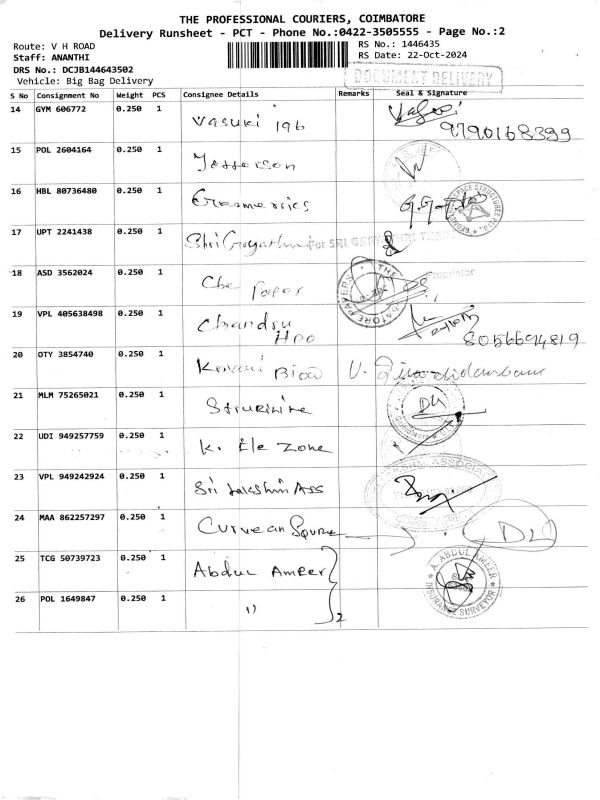 THE PROFESSIONAL COURIERS, COIMBATORE
Delivery Runsheet - PCT - Phone No.:0422-3505555 - Page No.:2
Route: V H ROAD
RS No.: 1446435
Staff: ANANTHI
RS Date: 22-Oct-2024
DRS No.: DCJB144643502
Vehicle: Big Bag Delivery
DOCUMENT DELIVERY
S No Consignment No Weight PCS Consignee Details Remarks Seal & Signature
14 GYM 606772 0.250 1 Vasuki 196
9790168399
15 POL 2604164 0.250 1 Jefferson
16 HBL 80736480 0.250 1
17 UPT 2241438 0.250 1 Shri Gayathri For SRI
Proprietor
18 ASD 3562024 0.250 1 Che Paper
19 VPL 405638498 0.250 1 Chandru
Hpo
8056694819
20 OTY 3854740 0.250 1
21 MLM 75265021 0.250 1
22 UDI 949257759 0.250 1 K. Ele Zone
23 VPL 949242924 0.250 1 Sri Lakshmi Ass
24 MAA 862257297 0.250 1 Curve an Square
25 TCG 50739723 0.250 1 Abdul Ameer
A. ABDUL AMEER
INSURANCE SURVEYOR
26 POL 1649847 0.250 1 "
2